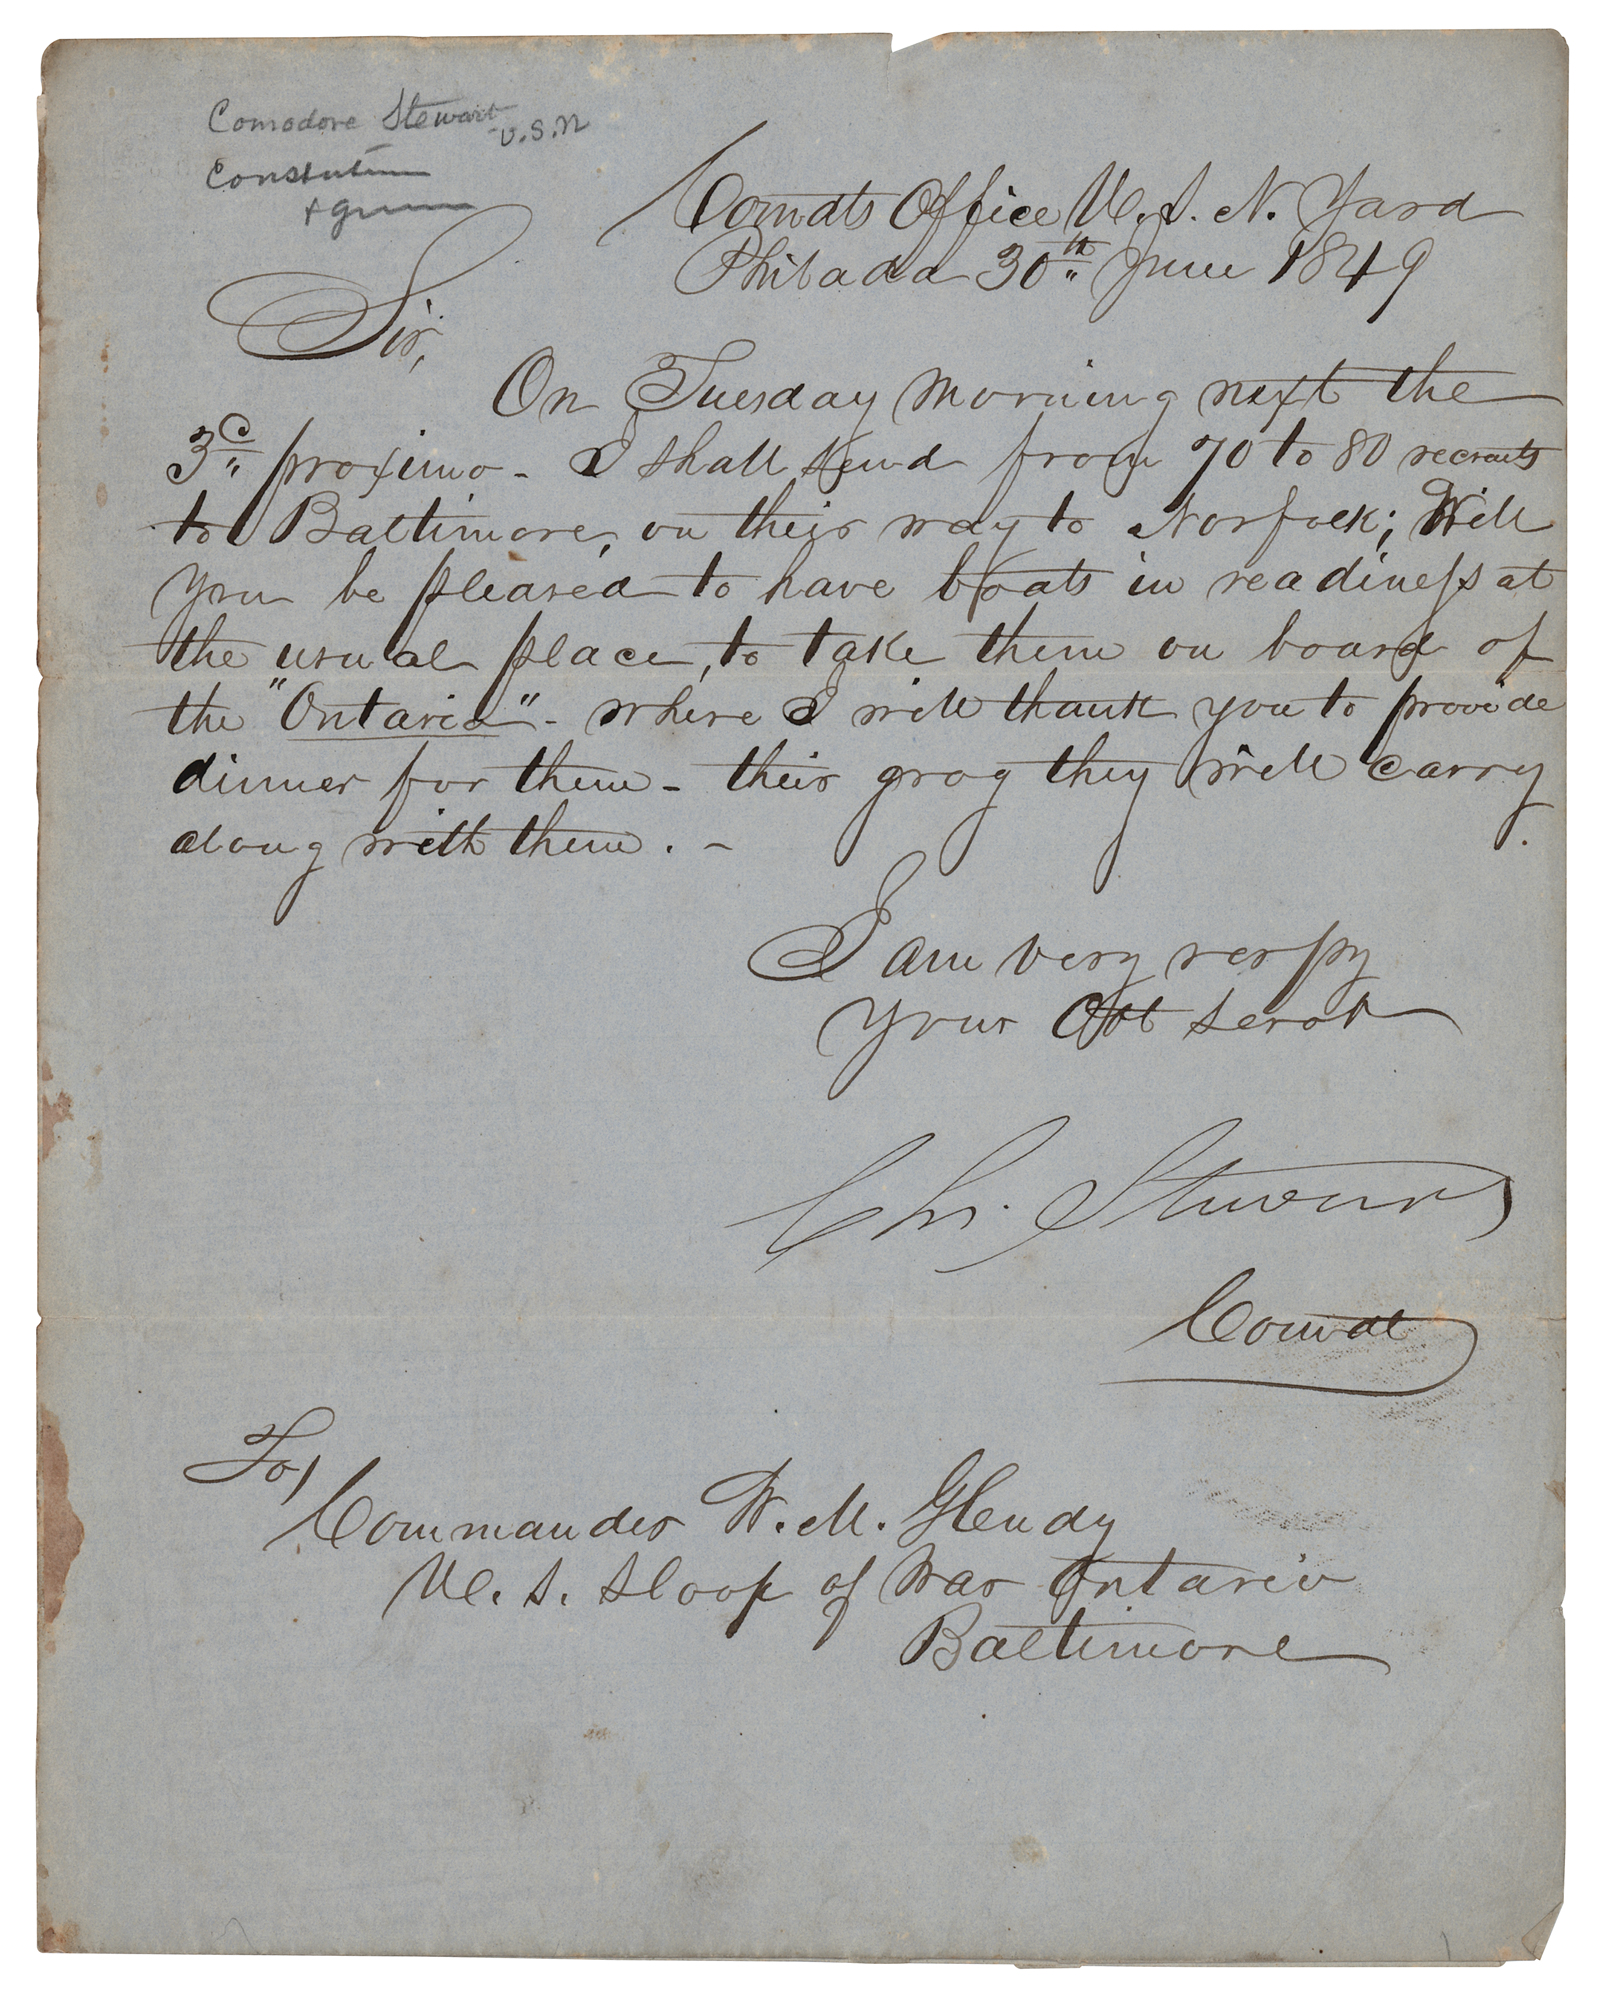 Comodore Stewart
U.S.N
Constitution
Comdts Office U. S. N. Yard
Philada 30th June 1849
Sir,
On Tuesday morning next the
3d proximo - I shall send from 70 to 80 recruits
to Baltimore, on their way to Norfolk; Will
you be pleased to have boats in readiness at
the usual place, to take them on board of
the "Ontario" - where I will thank you to provide
dinner for them - their grog they will carry
along with them. -
I am very respy
your Obt servt
Chs. Stewart
Comdt
To/
Commander W. M. Glendy
U. S. Sloop of War Ontario
Baltimore